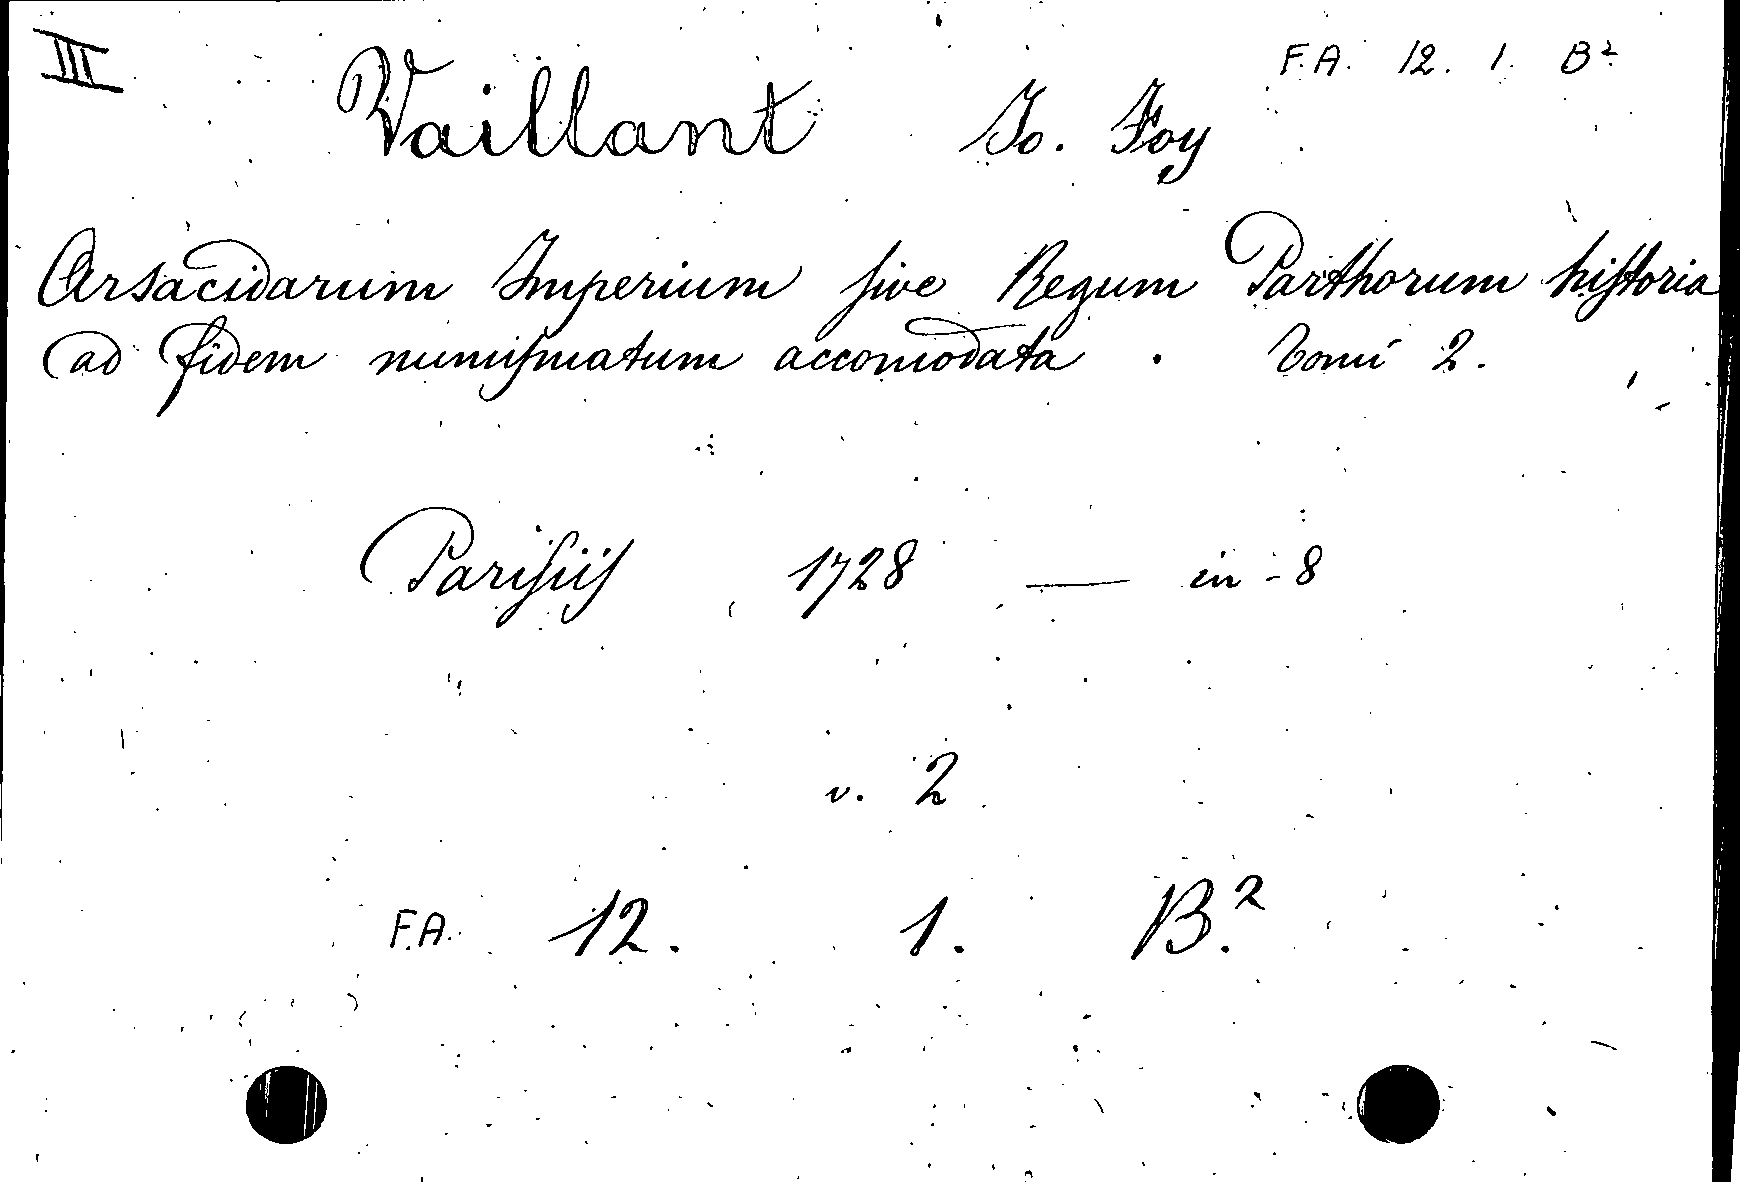 III
F.A. 12. 1. B²
Vaillant Jo. Foy
Arsacidarum Imperium sive Regum Parthorum historia
ad fidem numismatum accomodata . Tomi 2.
Parisiis 1728 — in-8
v. 2
F.A. 12. 1. B.²